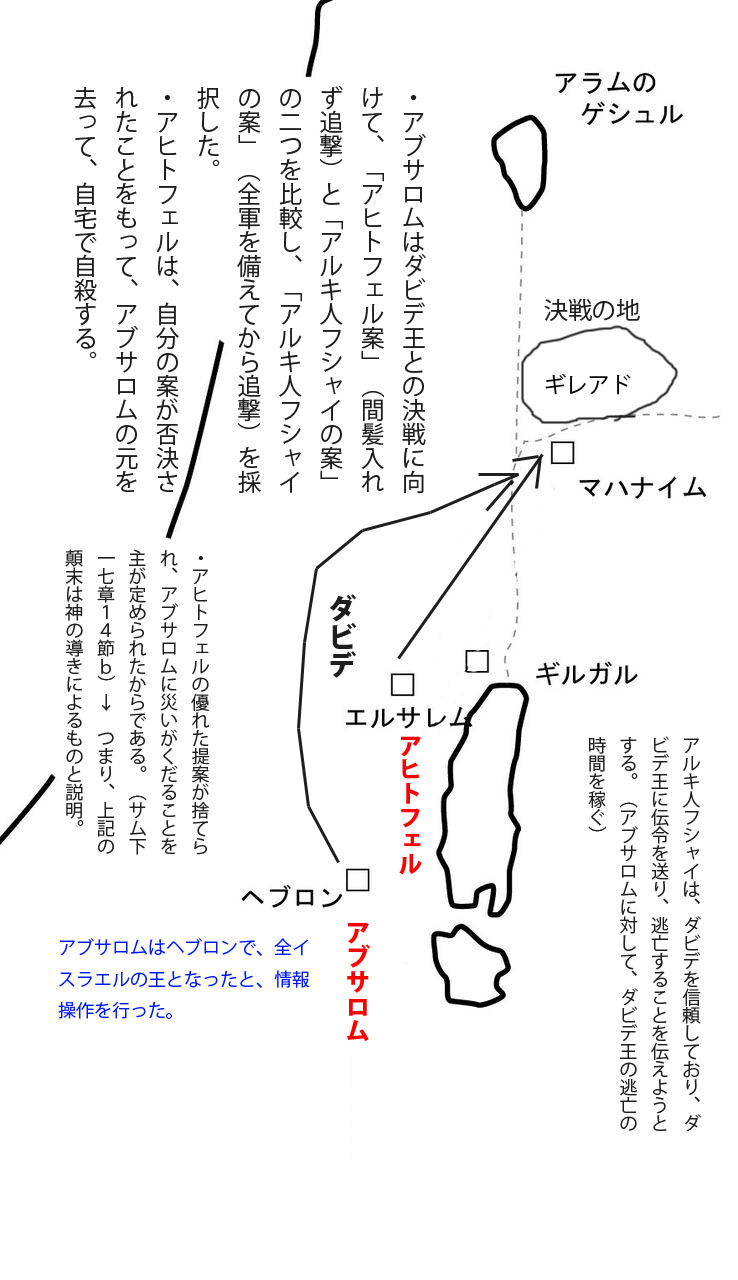 アラムの
ゲシュル
・アブサロムはダビデ王との決戦に向
けて、「アヒトフェル案」（間髪入れ
ず追撃）と「アルキ人フシャイの案」
の二つを比較し、「アルキ人フシャイ
の案」（全軍を備えてから追撃）を採
択した。
・アヒトフェルは、自分の案が否決さ
れたことをもって、アブサロムの元を
去って、自宅で自殺する。
決戦の地
ギレアド
マハナイム
ダビデ
ギルガル
エルサレム
アヒトフェル
・アヒトフェルの優れた提案が捨てら
れ、アブサロムに災いがくだることを
主が定められたからである。（サム下
一七章１４節ｂ）→　つまり、上記の
顛末は神の導きによるものと説明。
アルキ人フシャイは、ダビデを信頼しており、ダ
ビデ王に伝令を送り、逃亡することを伝えようと
する。（アブサロムに対して、ダビデ王の逃亡の
時間を稼ぐ）
ヘブロン
アブサロム
アブサロムはヘブロンで、全イ
スラエルの王となったと、情報
操作を行った。